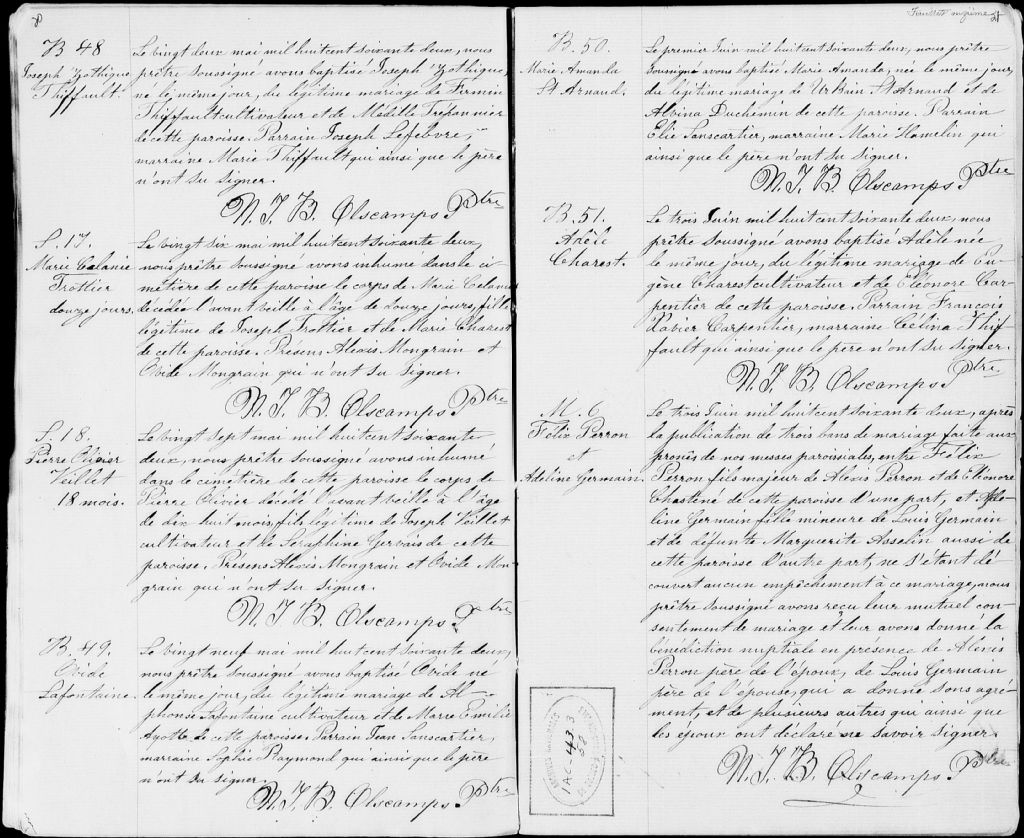 B. 48
Joseph Zothique
Thiffault.
Le vingt deux mai mil huitcent soixante deux, nous
prêtre soussigné avons baptisé Joseph Zothique,
né le même jour, du légitime mariage de Firmin
Thiffault cultivateur et de Médille Trépannier
de cette paroisse. Parrain Joseph Lefebvre,
marraine Marie Thiffault qui ainsi que le père
n'ont su signer.
N. J. B. Olscamps Ptre
S. 17.
Marie Célanie
Trottier
douze jours.
Le vingt six mai mil huitcent soixante deux,
nous prêtre soussigné avons inhumé dans le ci
metière de cette paroisse le corps de Marie Célanie
décédée l'avant veille à l'âge de douze jours, fille
légitime de Joseph Trottier et de Marie Charest
de cette paroisse. Présens Alexis Mongrain et
Ovide Mongrain qui n'ont su signer.
N. J. B. Olscamps Ptre
S. 18.
Pierre Olivier
Veillet
18 mois.
Le vingt sept mai mil huitcent soixante
deux, nous prêtre soussigné avons inhumé
dans le cemetière de cette paroisse le corps de
Pierre Olivier décédé l'avant veille à l'âge
de dix huit mois, fils légitime de Joseph Veillet
cultivateur et de Séraphine Gervais de cette
paroisse. Présens Alexis Mongrain et Ovide Mon-
grain qui n'ont su signer.
N. J. B. Olscamps Ptre
B. 49.
Ovide
Lafontaine.
Le vingt neuf mai mil huitcent soixante deux,
nous prêtre soussigné avons baptisé Ovide né
le même jour, du légitime mariage de Al-
phonse Lafontaine cultivateur et de Marie Emilie
Ayotte de cette paroisse. Parrain Jean Sanscartier,
marraine Sophie Raymond qui ainsi que le père
n'ont su signer.
N. J. B. Olscamps Ptre
Feuillet onzième
B. 50.
Marie Amanda
St Arnaud.
Le premier Juin mil huitcent soixante deux, nous prêtre
soussigné avons baptisé Marie Amanda, née le même jour,
du légitime mariage de Urbain St Arnaud et de
Albina Duchemin de cette paroisse. Parrain
Elie Sanscartier, marraine Marie Hamelin qui
ainsi que le père n'ont su signer.
N. J. B. Olscamps Ptre
B. 51.
Adèle
Charest.
Le trois Juin mil huitcent soixante deux, nous
prêtre soussigné avons baptisé Adèle née
le même jour, du légitime mariage de Eu-
gène Charest cultivateur et de Eléonore Car-
pentier de cette paroisse. Parrain François
Xavier Carpentier, marraine Célina Thif-
fault qui ainsi que le père n'ont su signer.
N. J. B. Olscamps Ptre
M. 6
Félix Perron
et
Adeline Germain.
Le trois Juin mil huitcent soixante deux, après
la publication de trois bans de mariage faite aux
prônes de nos messes paroissiales, entre Félix
Perron fils majeur de Alexis Perron et de Eléonore
Chastené de cette paroisse d'une part, et Ade-
line Germain fille mineure de Louis Germain
et de défunte Marguerite Asselin aussi de
cette paroisse d'autre part, ne s'étant dé
couvert aucun empêchement à ce mariage, nous
prêtre soussigné avons reçu leur mutuel con-
sentement de mariage et leur avons donné la
bénédiction nuptiale en présence de Alexis
Perron père de l'époux, de Louis Germain
père de l'épouse, qui a donné sons agré-
ment, et de plusieurs autres qui ainsi que
les époux ont déclaré ne savoir signer.
N. J. B. Olscamps Ptre
1AC-43 3
58